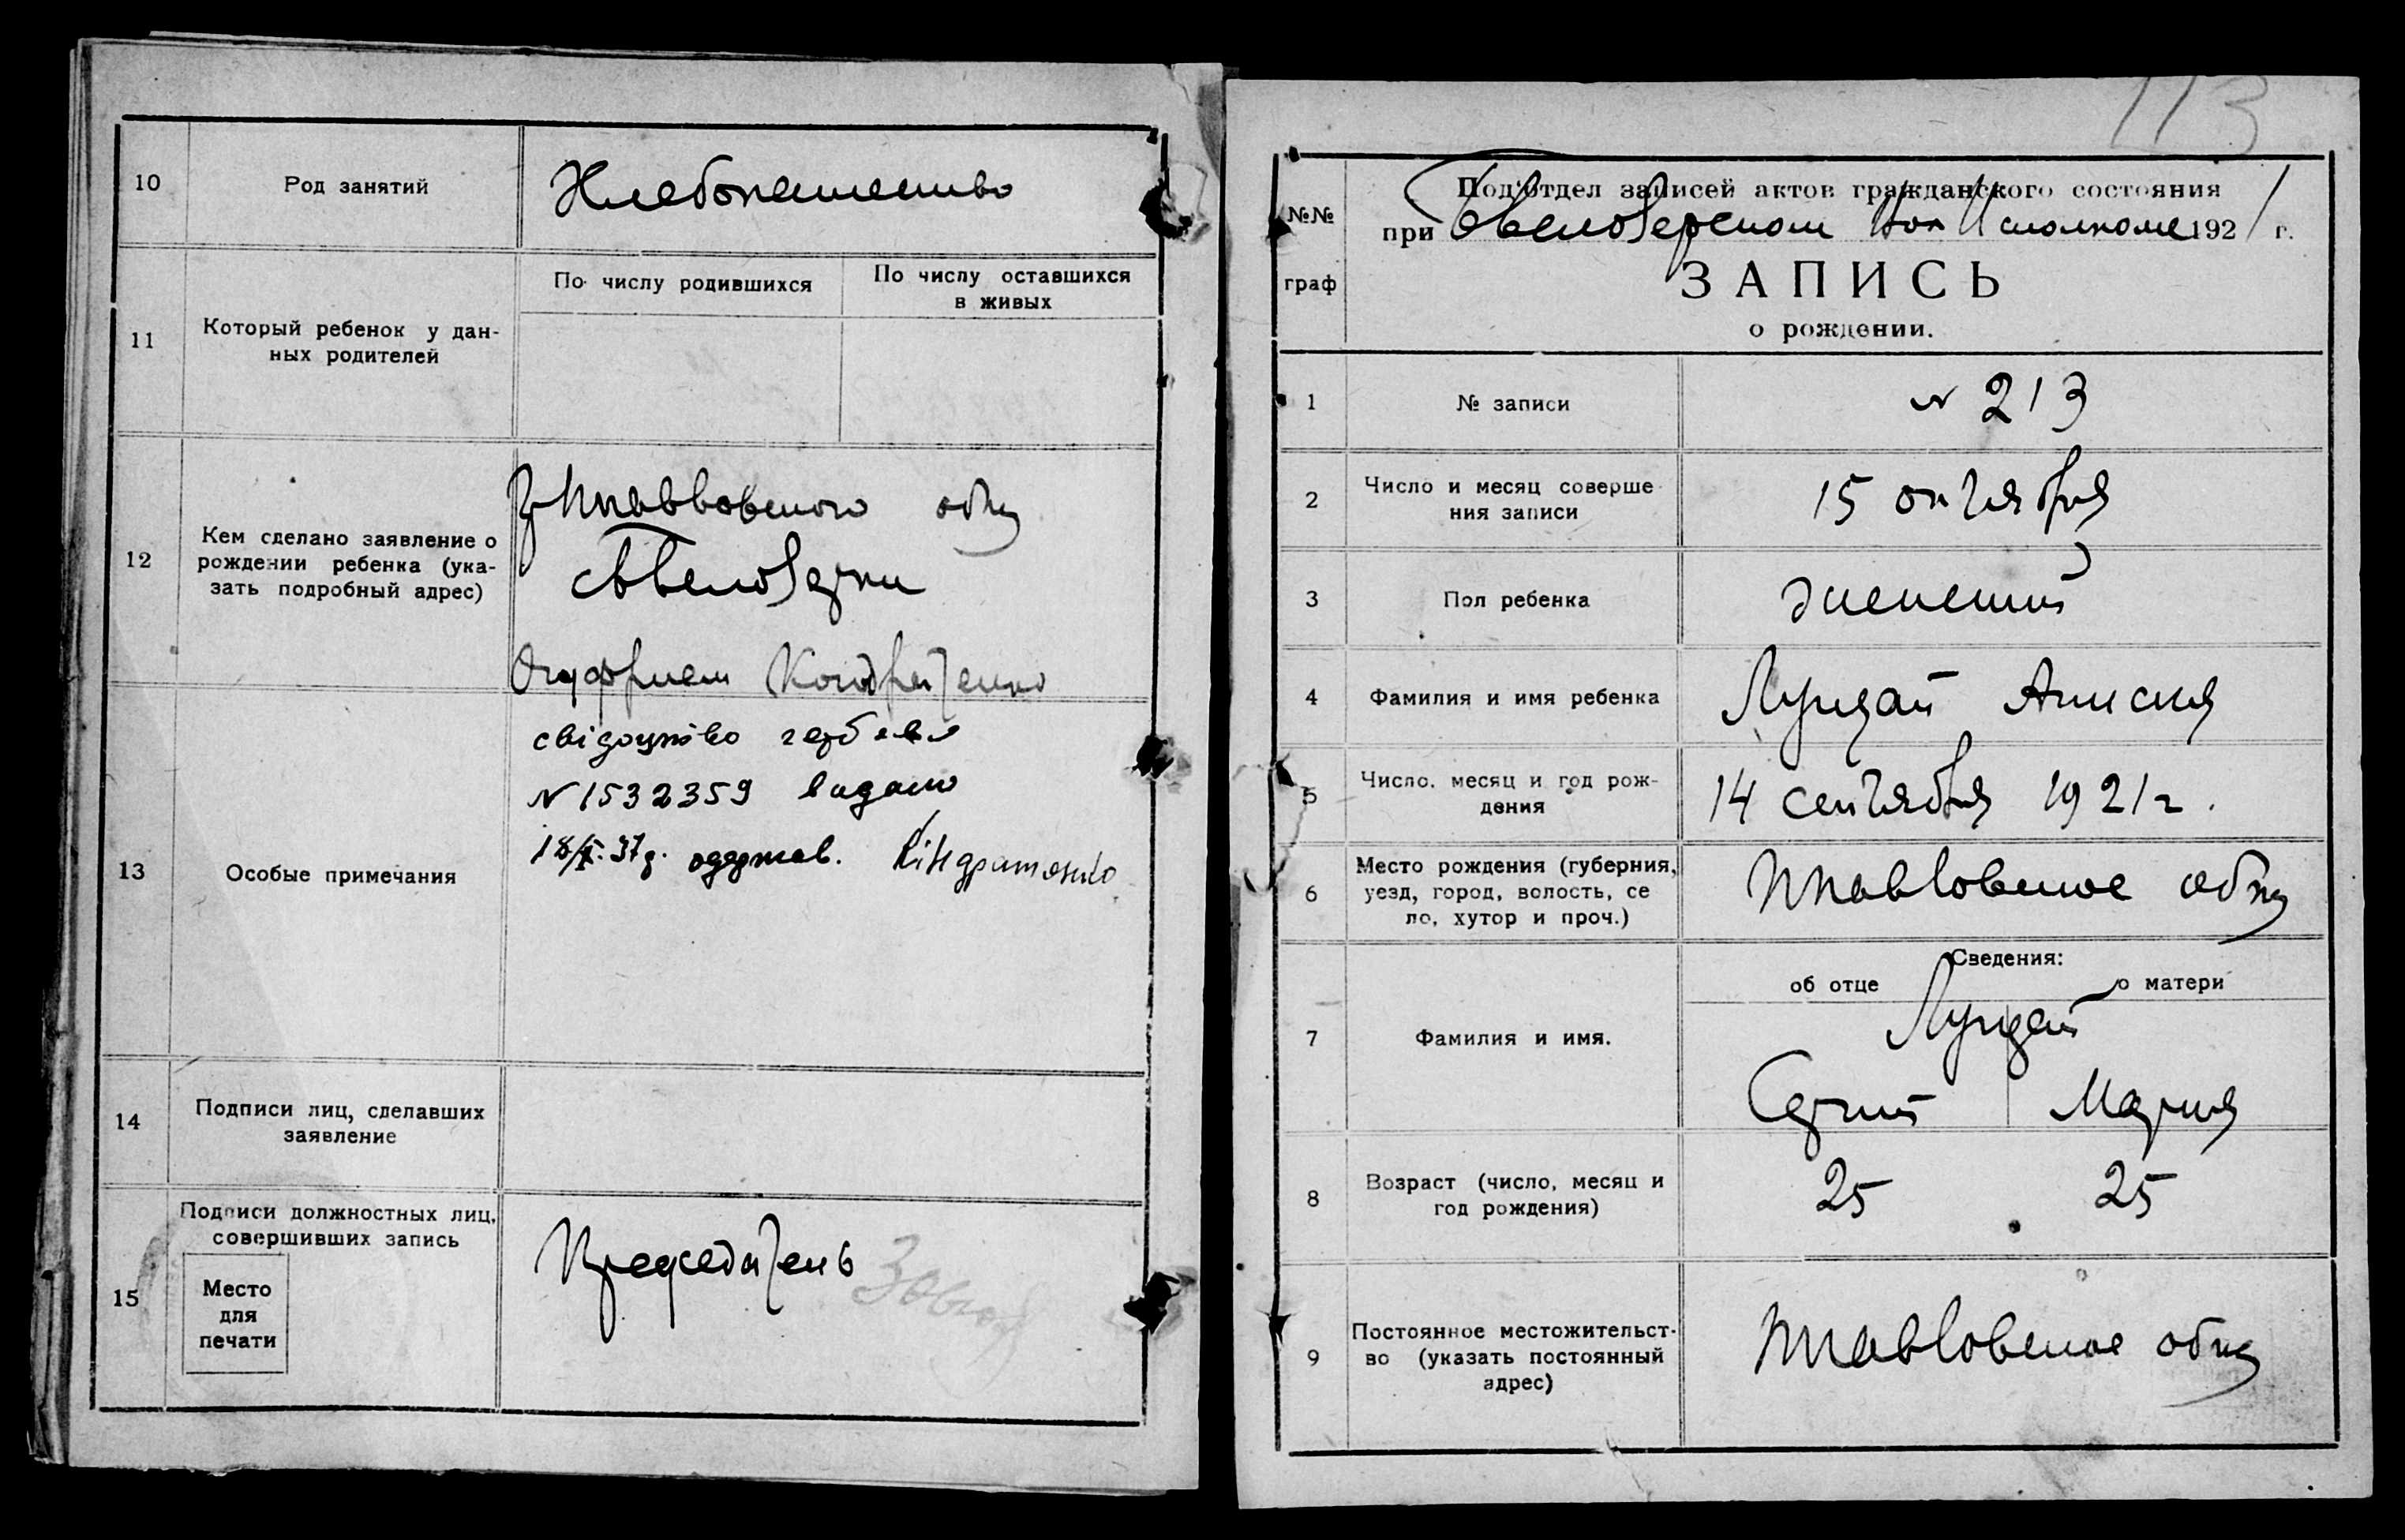 10
Род занятий
Хлебопашество
11
Который ребенок у дан-
ных родителей
По числу родившихся
По числу оставшихся
в живых
12
Кем сделано заявление о
рождении ребенка (ука-
зать подробный адрес)
общ
с Белозерки
Кондратенко
13
Особые примечания
свідоцтво гербове
N 1532359 видано
18/X.37р. одержав. Кіндратенко
14
Подписи лиц, сделавших
заявление
15
Подписи должностных лиц,
совершивших запись
Место
для
печати
Председатель
113
№№
граф
Под'отдел записей актов гражданского состояния
при Белозерском Вол Исполкоме 1921 г.
ЗАПИСЬ
о рождении.
1
№ записи
N 213
2
Число и месяц соверше
ния записи
15 октября
3
Пол ребенка
женский
4
Фамилия и имя ребенка
Лунгай Анисия
5
Число. месяц и год рож-
дения
14 сентября 1921 г.
6
Место рождения (губерния,
уезд, город, волость, се
ло, хутор и проч.)
общ
7
Фамилия и имя.
Сведения:
об отце
о матери
Лунгай
Сергий
Мария
8
Возраст (число, месяц и
год рождения)
25
25
9
Постоянное местожительст-
во (указать постоянный
адрес)
общ